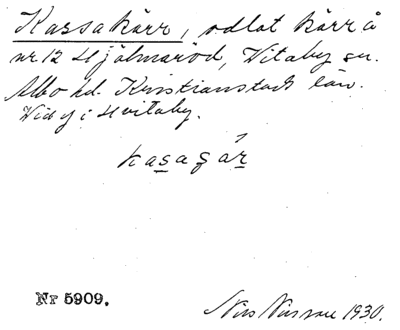 Kassakärr, odlat kärr å
nr 12 Hjälmaröd, Vitaby sn.
Albo hd. Kristianstads län.
Vid y i Hvitaby.
kasagár
Nr 5909.
Nils Nilsson 1930.